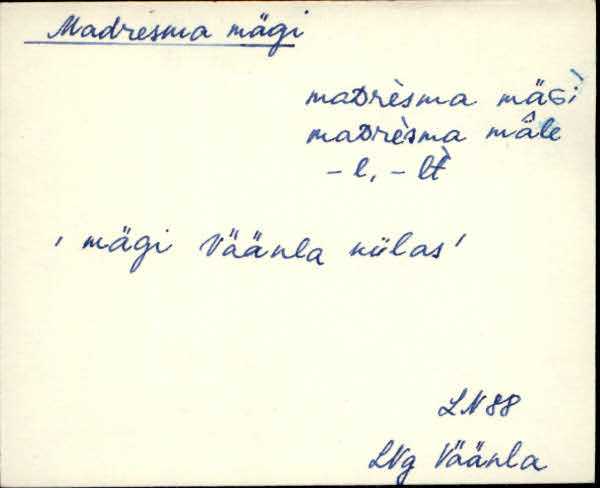 Madrèsma mägi
maDrèsma mäGi
maDrèsma mâle
– l, – lt
' mägi Väänla külas '
LN 88
LNg Väänla